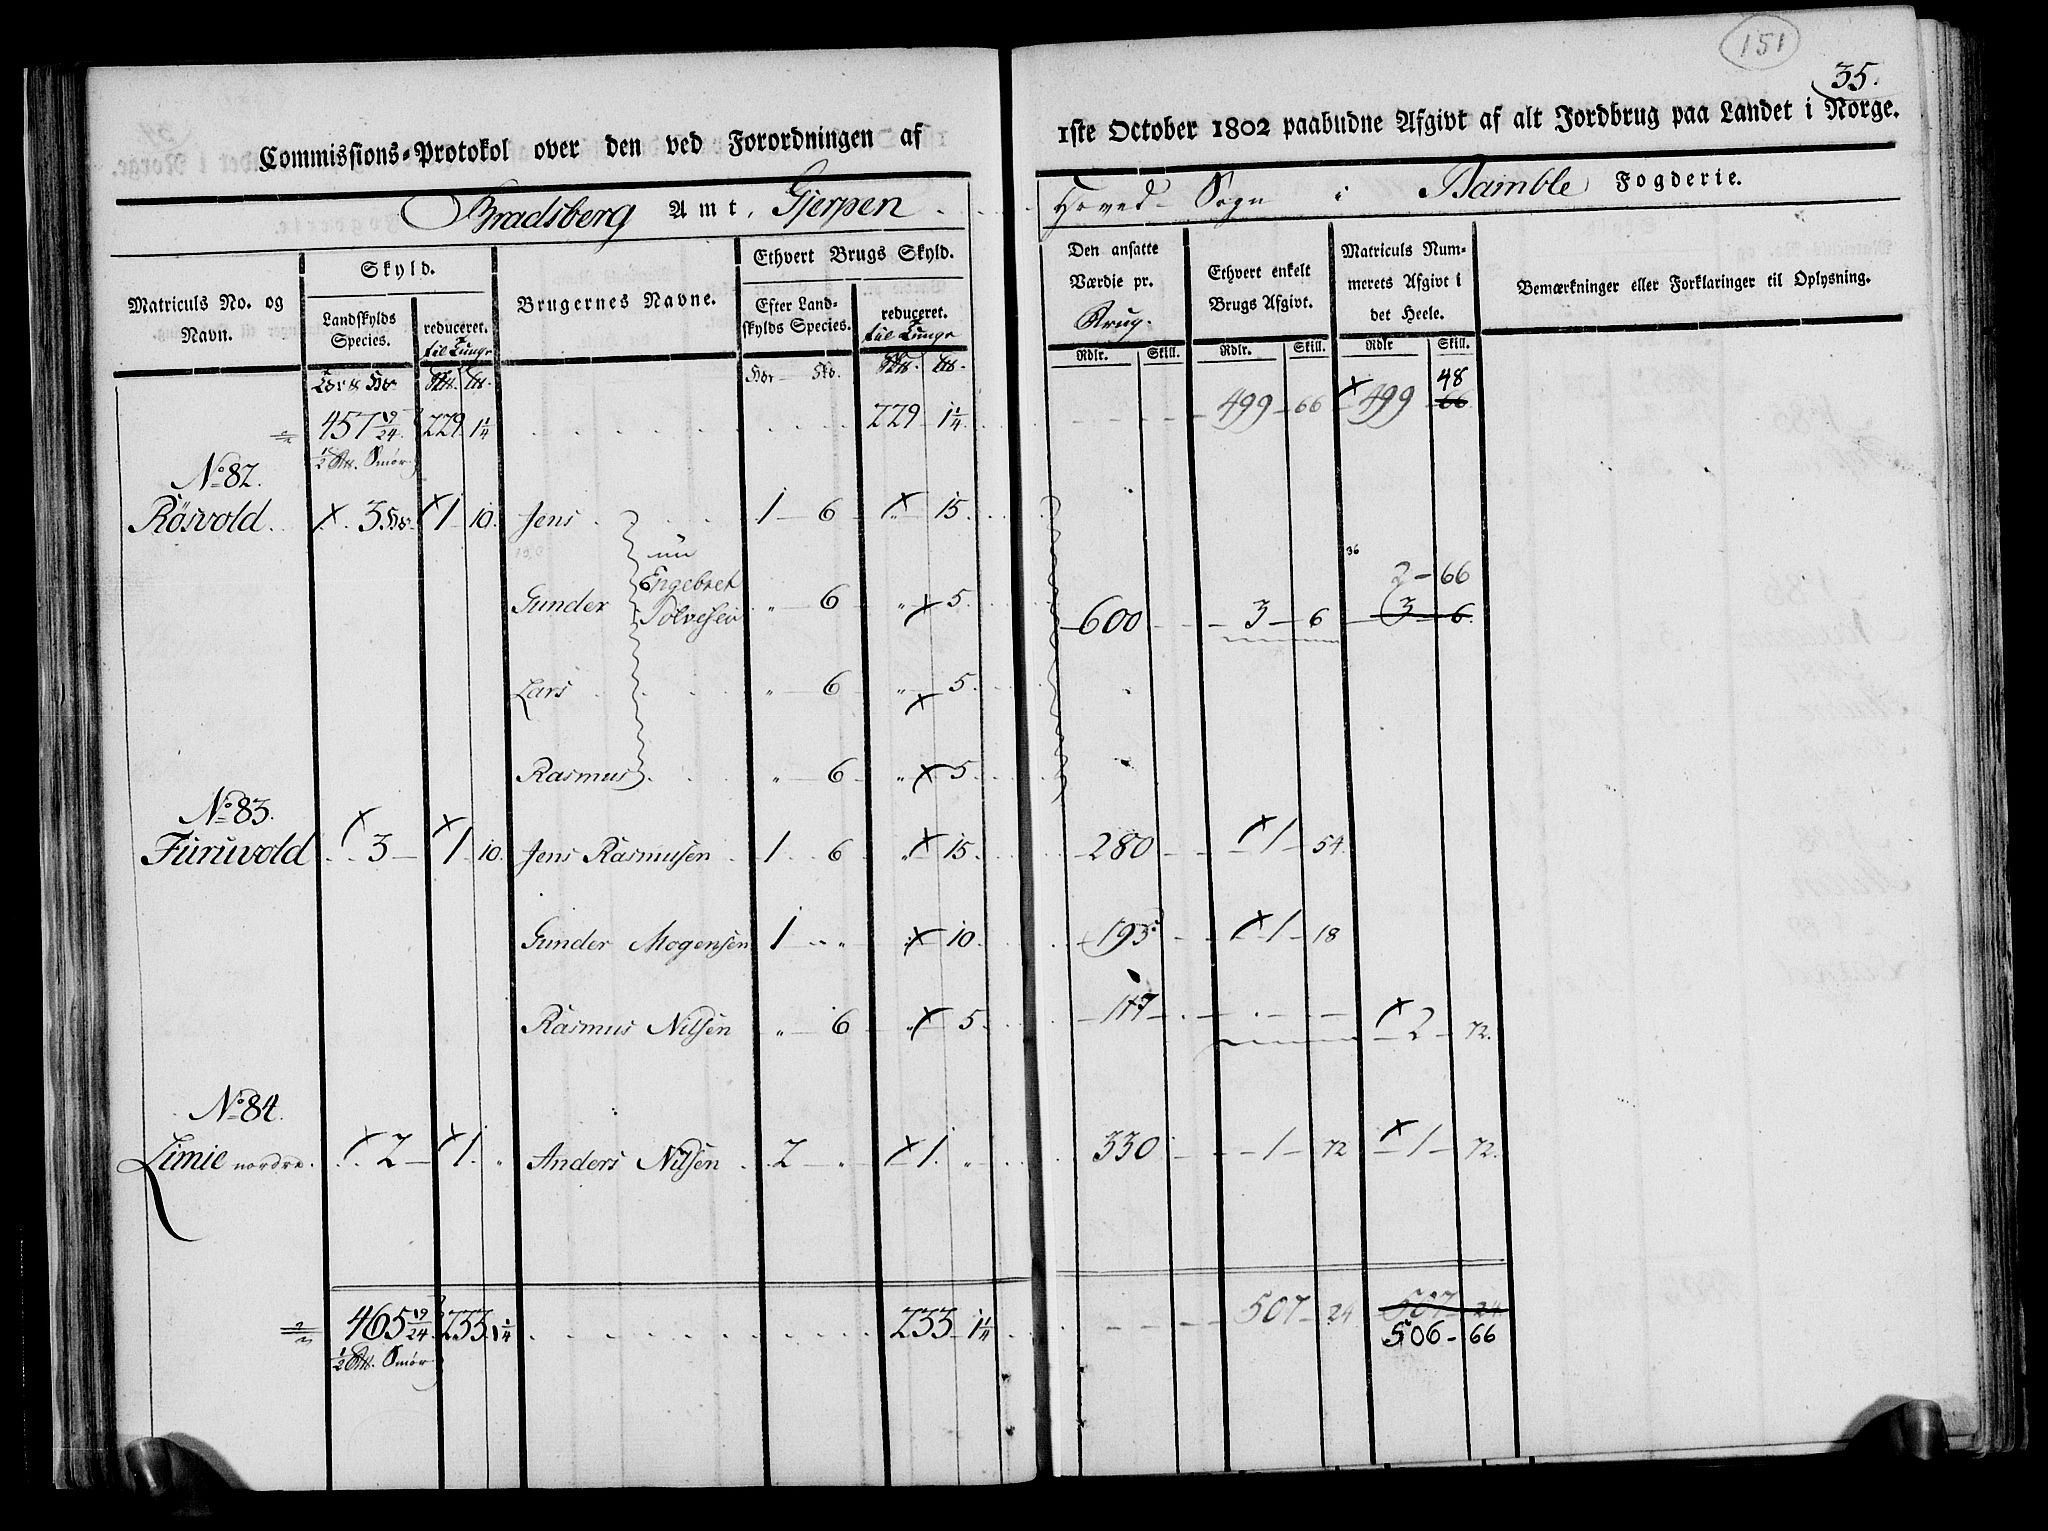 151
35.
Commissions-Protokol over den ved Forordningen af
1ste October 1802 paabudne Afgivt af alt Jordbrug paa Landet i Norge.
Bradsberg Amt, Gjerpen
Hoved Sogn i Bamble Fogderie.
Matriculs No. og Navn.
Skyld.
Landskylds Species.
reduceret. til Tunge
Brugernes Navne.
Ethvert Brugs Skyld.
Efter Landskylds Species.
reduceret. til Tunge
Den ansatte Værdie pr. Brug.
Ethvert enkelt Brugs Afgivt.
Matriculs Nummerets Afgivt i det Heele.
Bemærkninger eller Forklaringer til Oplysning.
Rdlr. Skill. Rdlr. Skill. Rdlr Skill.
457 19/24 229 1 1/4 229 1 1/4 499 66 499 66 48
1/2 Smör
No 82.
Rösvold 3 1 10. Jens 1 6 15
nu
Gunder Engebret Tolvesen 6 5 600 3 6 3 6 2 66
36
Lars 6 5
Rasmus 6 5
No 83.
Furuvold 3 1 10. Jens Rasmusen 1 6 15 280 1 54
Gunder Mogensen 1 10 195 1 18
Rasmus Nilsen 6 5 117 2 72.
No 84.
Limie nordre. 2 1 Anders Nilsen 2 1 330 1 72 1 72.
465 19/24 233 1 1/4 233 1 1/4 507 24 507 24
1/2 Smör 506 66